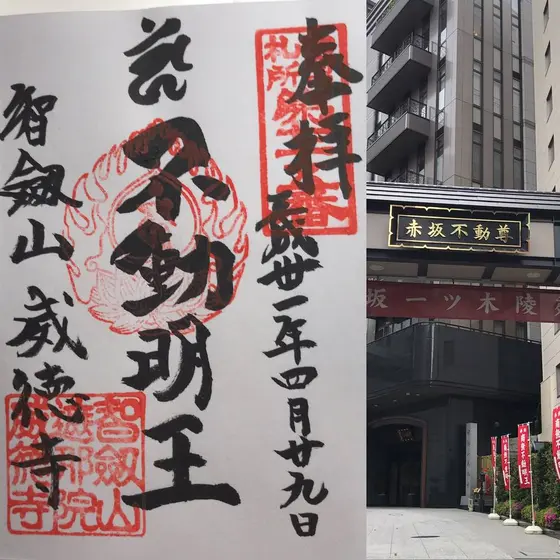 奉拝
平成卅一年四月廿九日
不動明王
智剱山威徳寺
札所第
智劔山
遮那院
威徳寺
赤坂不動尊
坂一ツ木陵